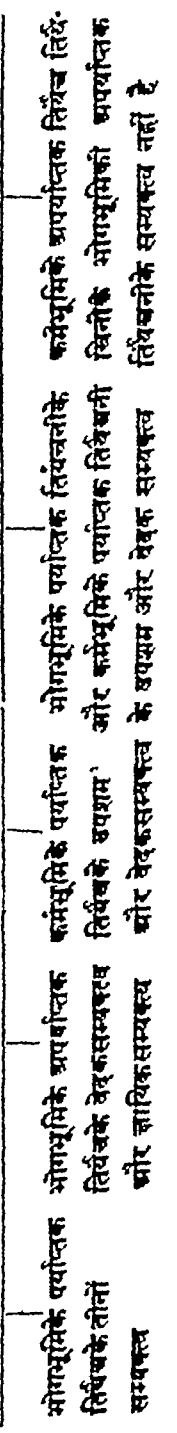 भोगभूमिके पर्याप्तक
तिर्यंचके तीनों
सम्यक्त्व
भोगभूमिके अपर्याप्तक
तिर्यंचके वेदकसम्यक्त्व
और क्षायिकसम्यक्त्व
कर्मभूमिके पर्याप्तक
तिर्यंचके उपशम
और वेदकसम्यक्त्व
भोगभूमिके पर्याप्तक तियंचनीके
और कर्मभूमिके पर्याप्तक तिर्यंचनी
के उपशम और वेदक सम्यक्त्व
कर्मभूमिके अपर्याप्तक तिर्यंच तिर्यं-
चिनीके भोगभूमिकी अपर्याप्तक
तिर्यंचनीके सम्यक्त्व नहीं है